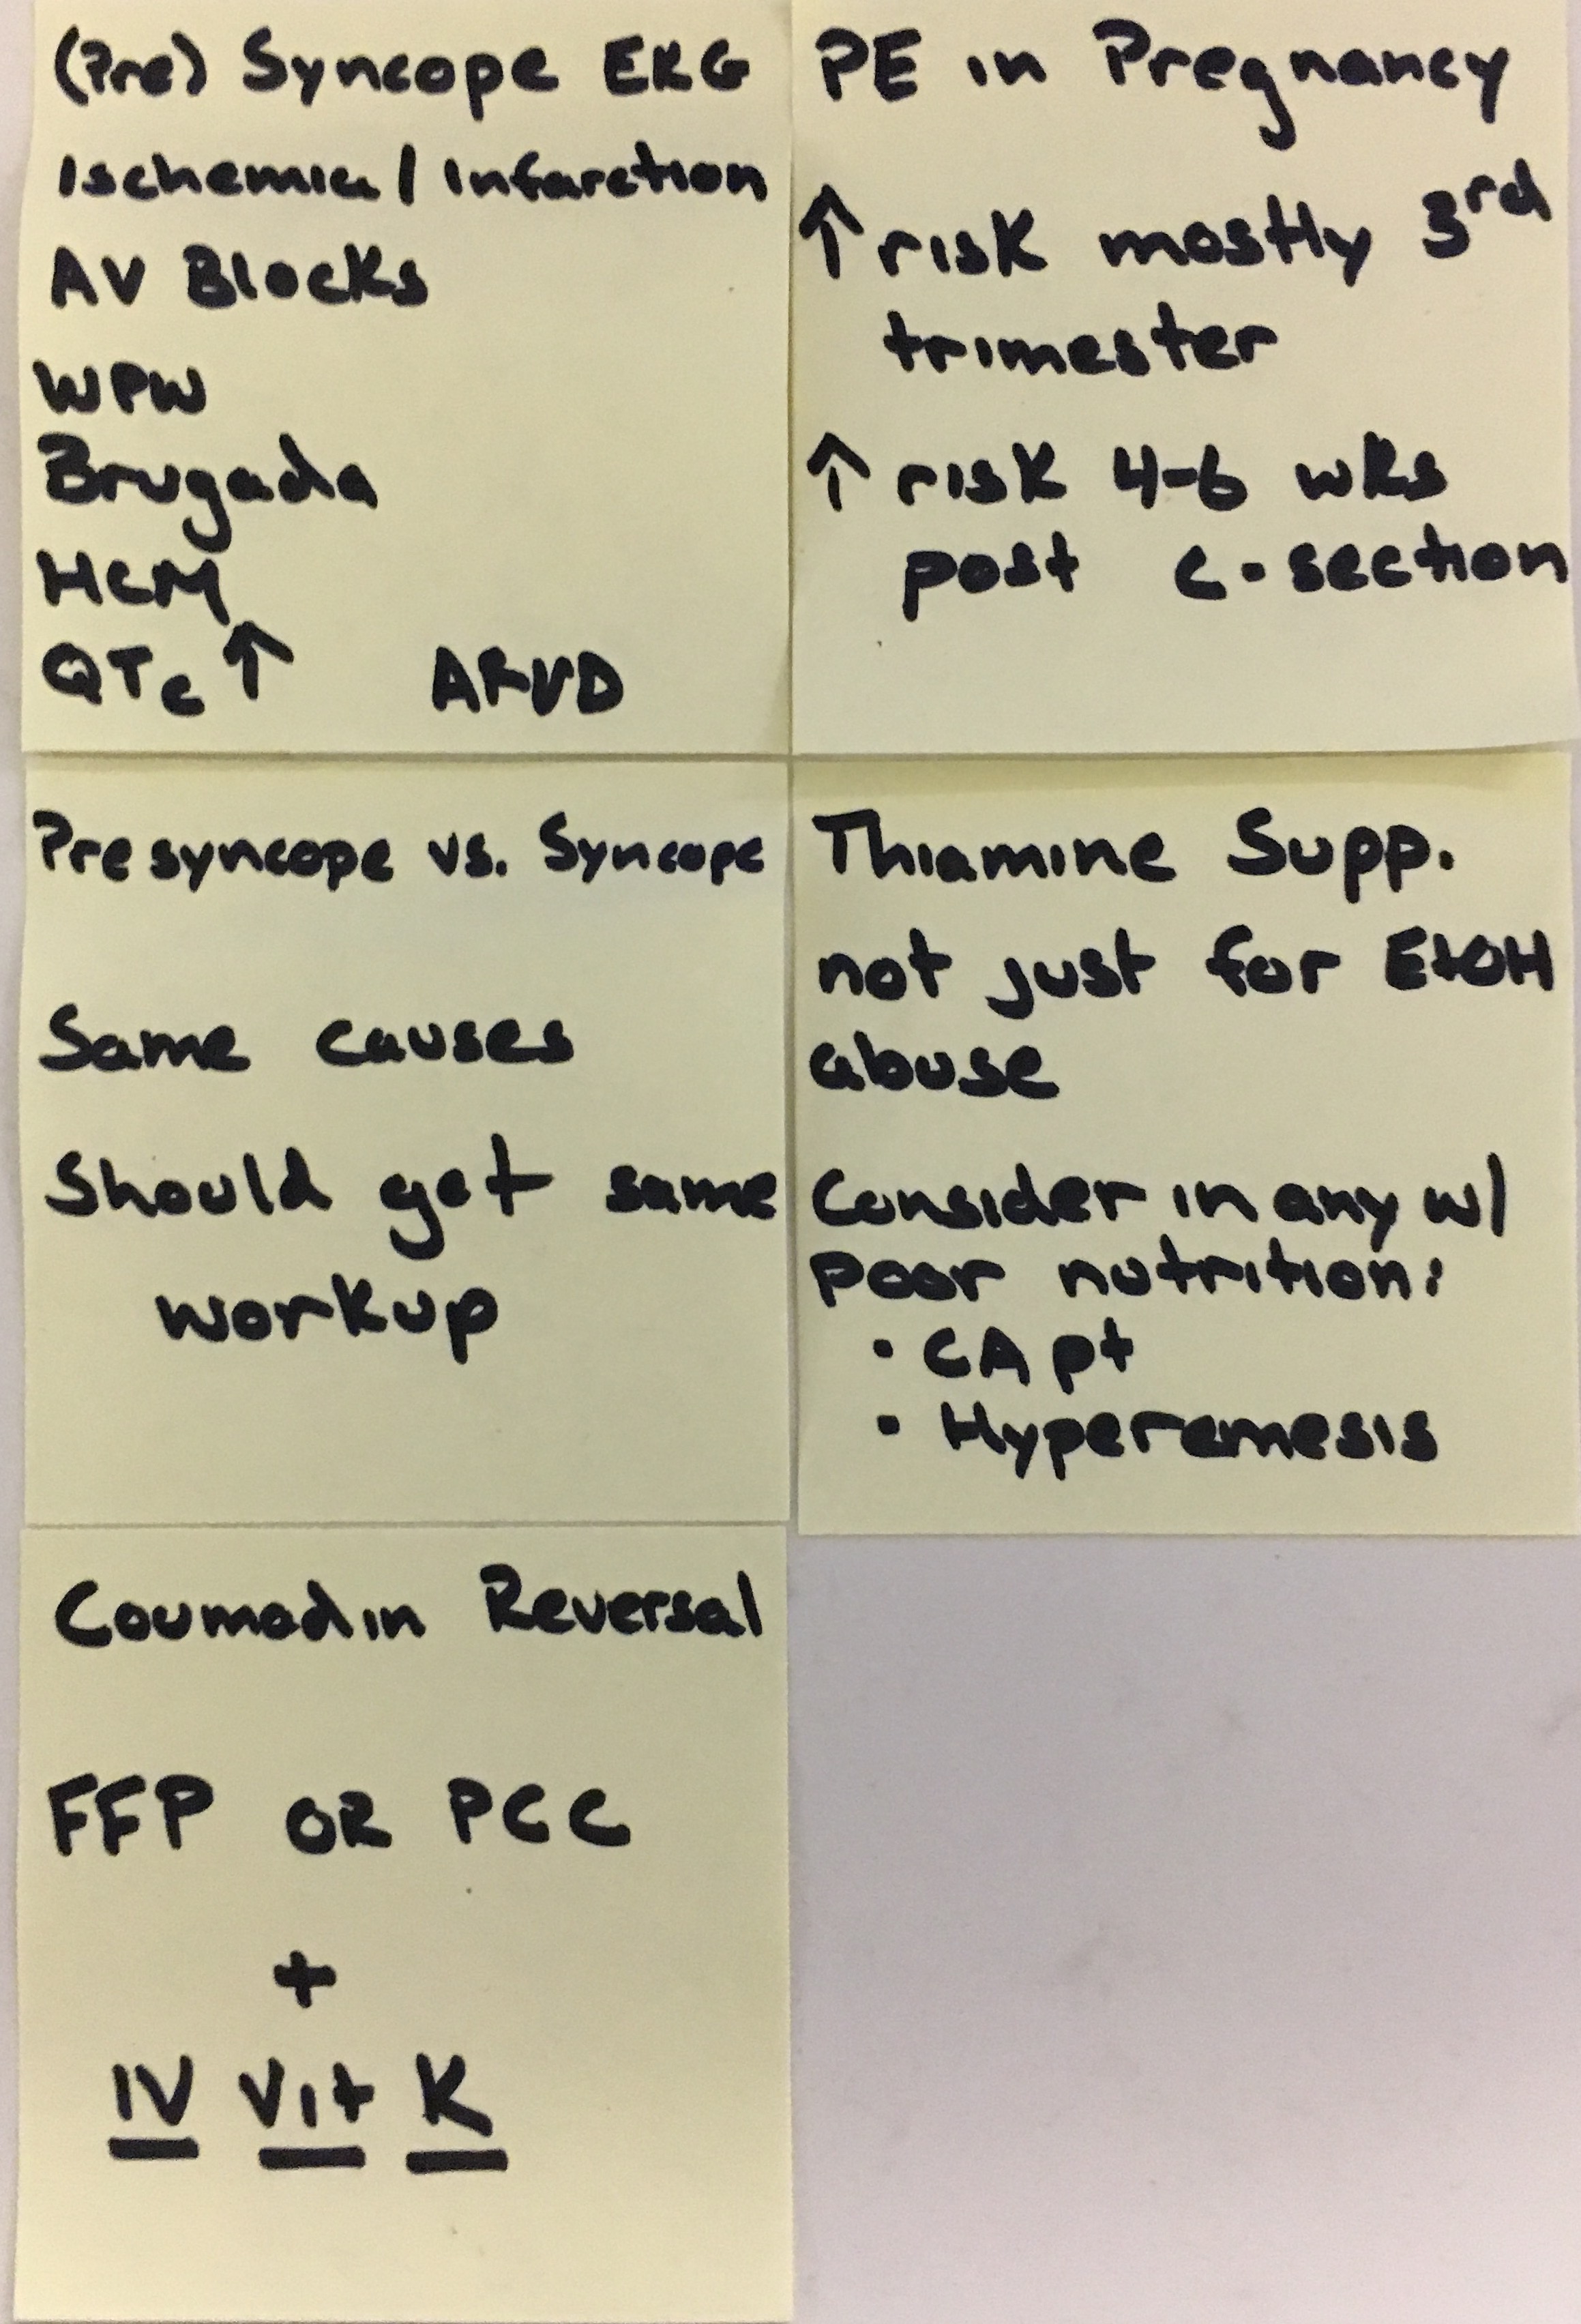 (Pre) Syncope EKG
Ischemia / Infarction
AV Blocks
WPW
Brugada
HCM
QTc ↑ ARVD
PE in Pregnancy
↑ risk mostly 3rd
trimester
↑ risk 4-6 wks
post c-section
Presyncope vs. Syncope
Same causes
Should get same
workup
Thiamine Supp.
not just for EtOH
abuse
Consider in any w/
poor nutrition:
• CA pt
• Hyperemesis
Coumadin Reversal
FFP OR PCC
+
IV Vit K